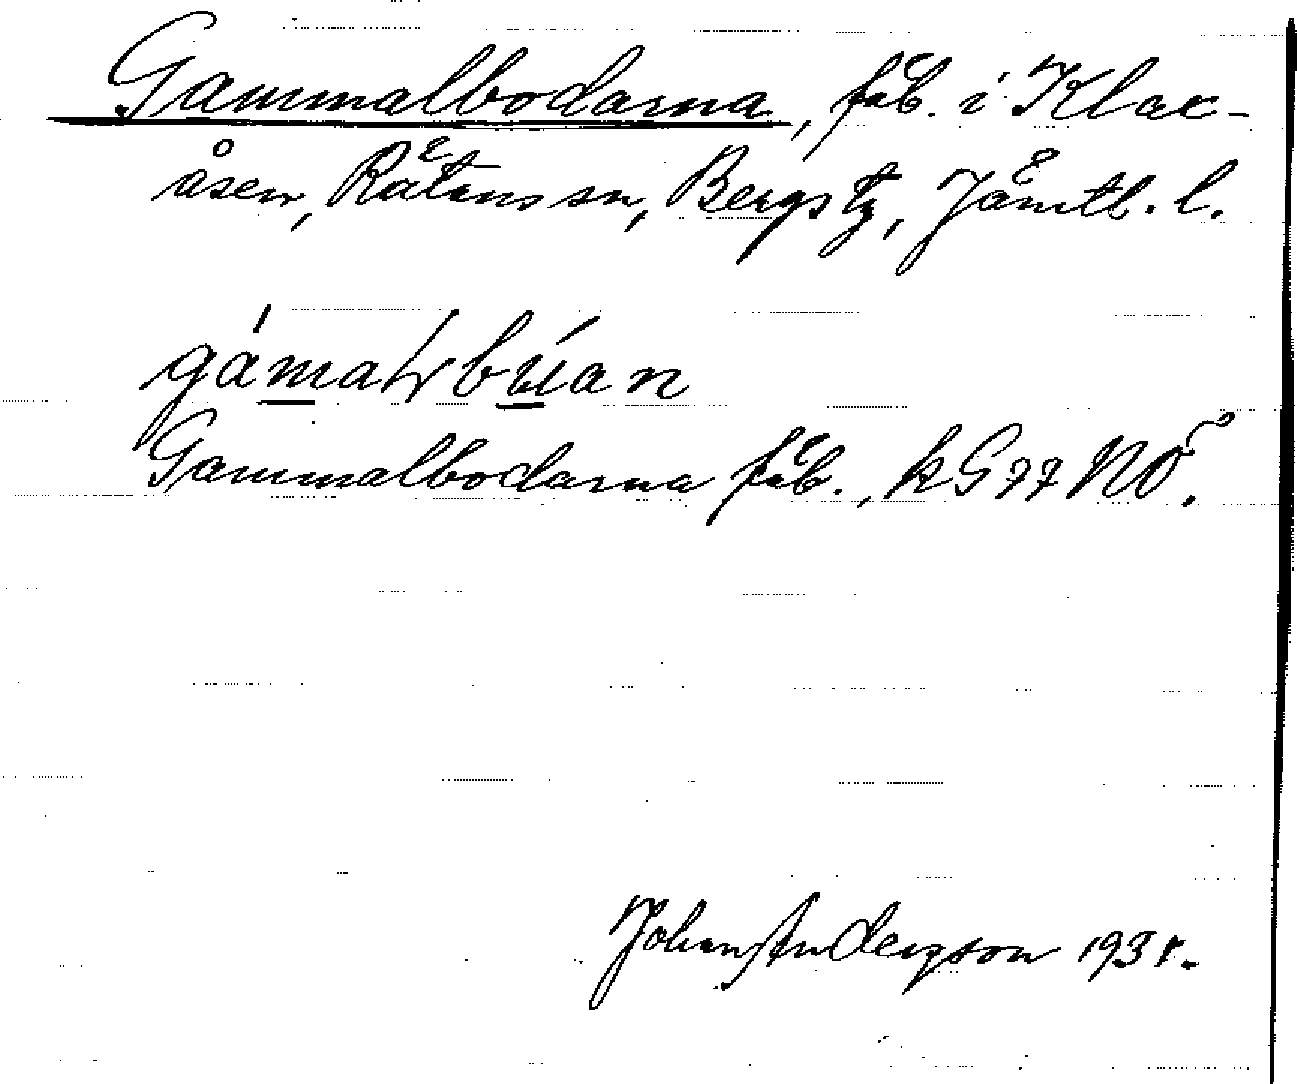 Gammalbodarna, fäb. i Klax-
åsen, Rätans sn, Bergs tg, Jämtl. l.
gámalbúan
Gammalbodarna fäb., kG77 NO.
Johan Anderson 1931.